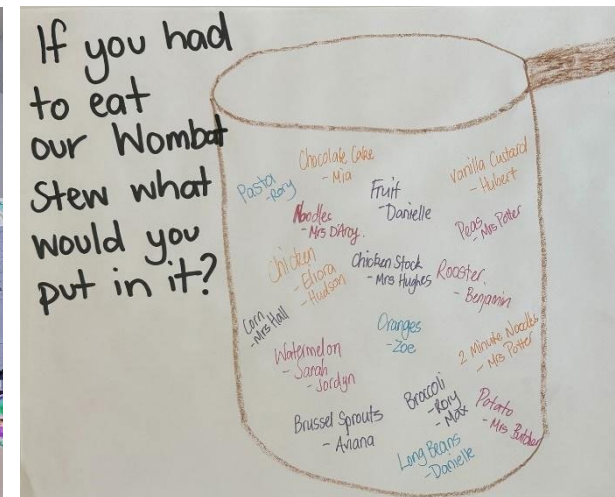 If you had
to eat
our Wombat
Stew what
would you
put in it?
Chocolate Cake
- Mia
Vanilla Custard
- Hubert
Pasta
- Rory
Fruit
- Danielle
Noodles
- Mrs D'Arcy.
Peas
- Mrs Potter
Chicken
- Eliora
- Hudson
Chicken Stock
- Mrs Hughes
Rooster.
- Benjamin
Corn
- Mrs Hall
Oranges
- Zoe
2 Minute Noodles
- Mrs Potter
Watermelon
- Sarah
- Jordyn
Broccoli
- Rory
- Max
Potato
- Mrs
Brussel Sprouts
- Ariana
Long Beans
- Danielle